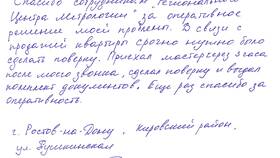 Спасибо сотрудникам "Регионального
Центра Метрологии" за оперативное
решение моей проблемы. В связи с
продажей квартиры срочно нужно было
сделать поверку. Приехал мастер через 2 часа
после моего звонка, сделал поверку и выдал
комплект документов, еще раз спасибо за
оперативность.
г. Ростов-на-Дону, Кировский район,
ул. Пушкинская